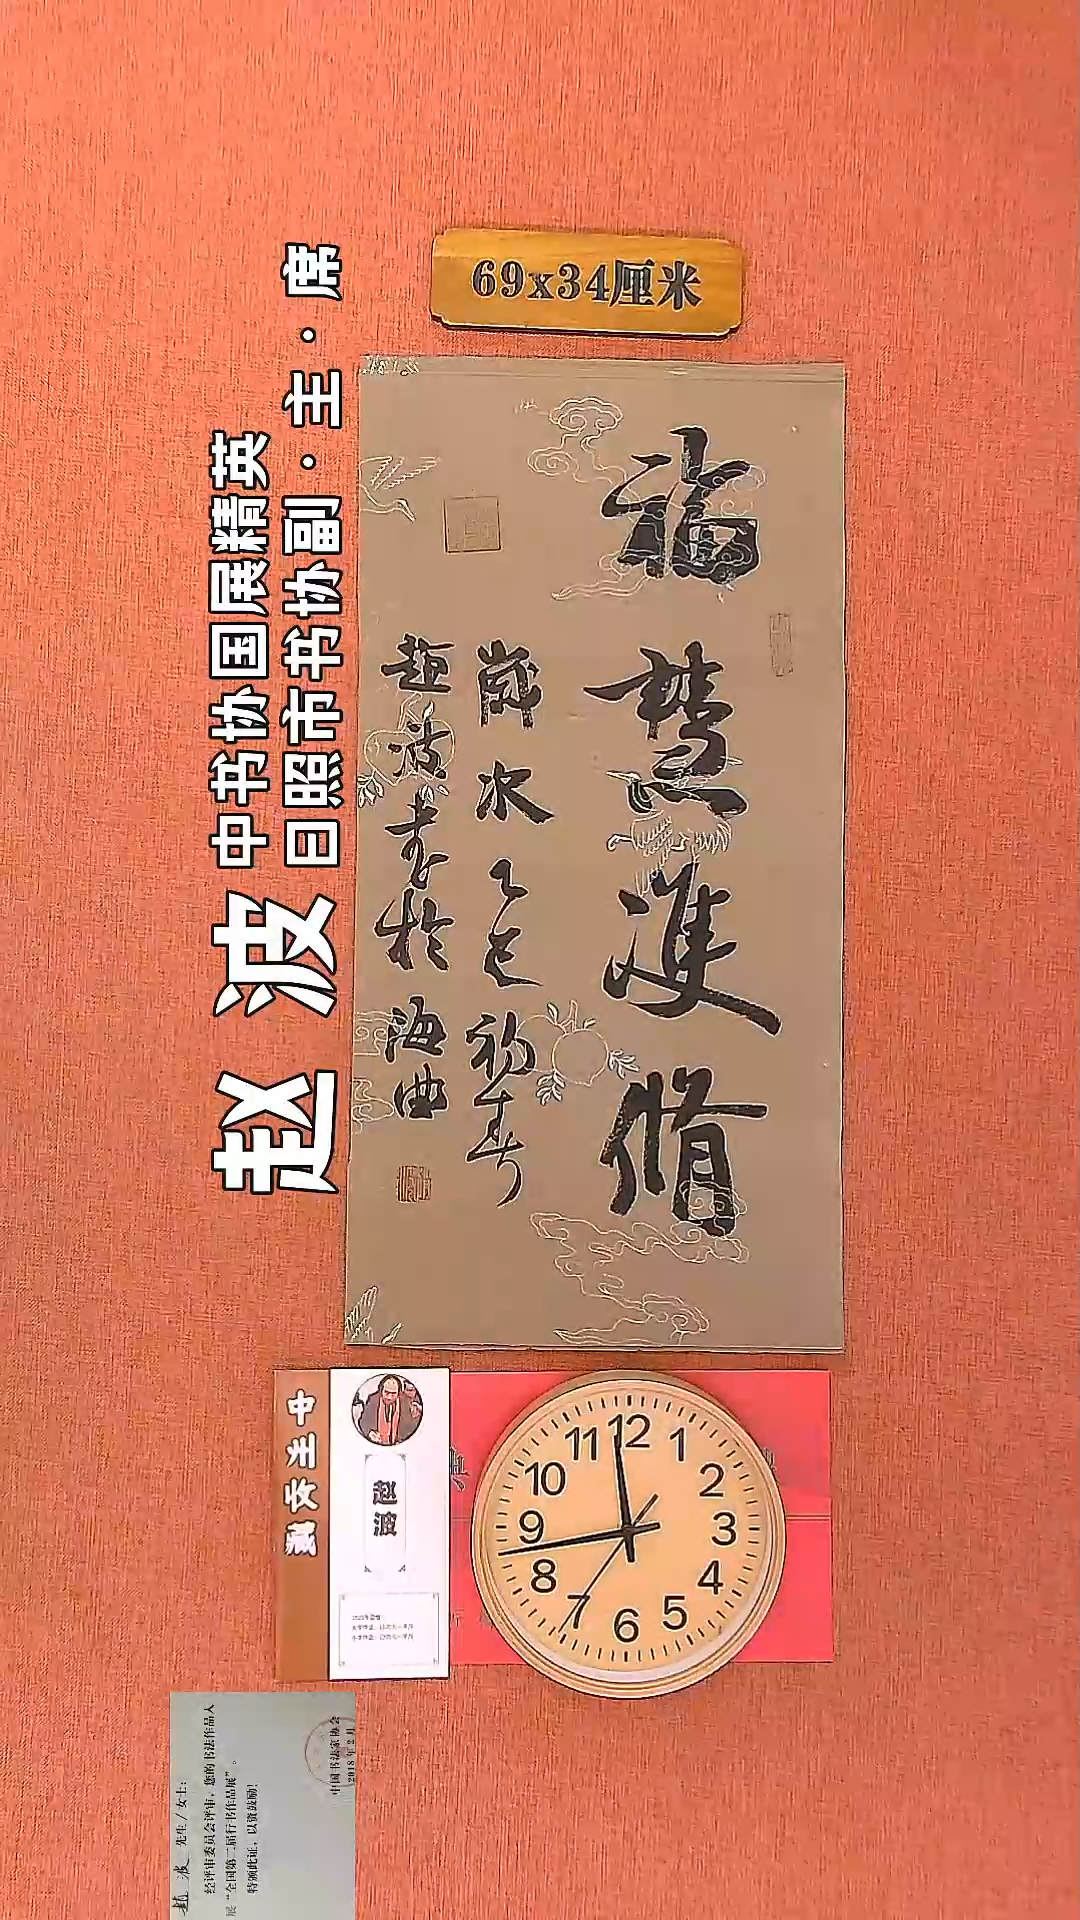 69x34厘米
福慧双修
岁次乙巳初春
赵波书于海曲
赵波
中书协国展精英
日照市书协副·主·席
中
藏
赵波
12
1
2
3
4
5
6
7
8
9
10
11
赵波 先生/女士:
经评审委员会评审,您的书法作品入
展“全国第二届行书作品展”。
特颁此证,以资鼓励!
中国书法家协会
2018年2月